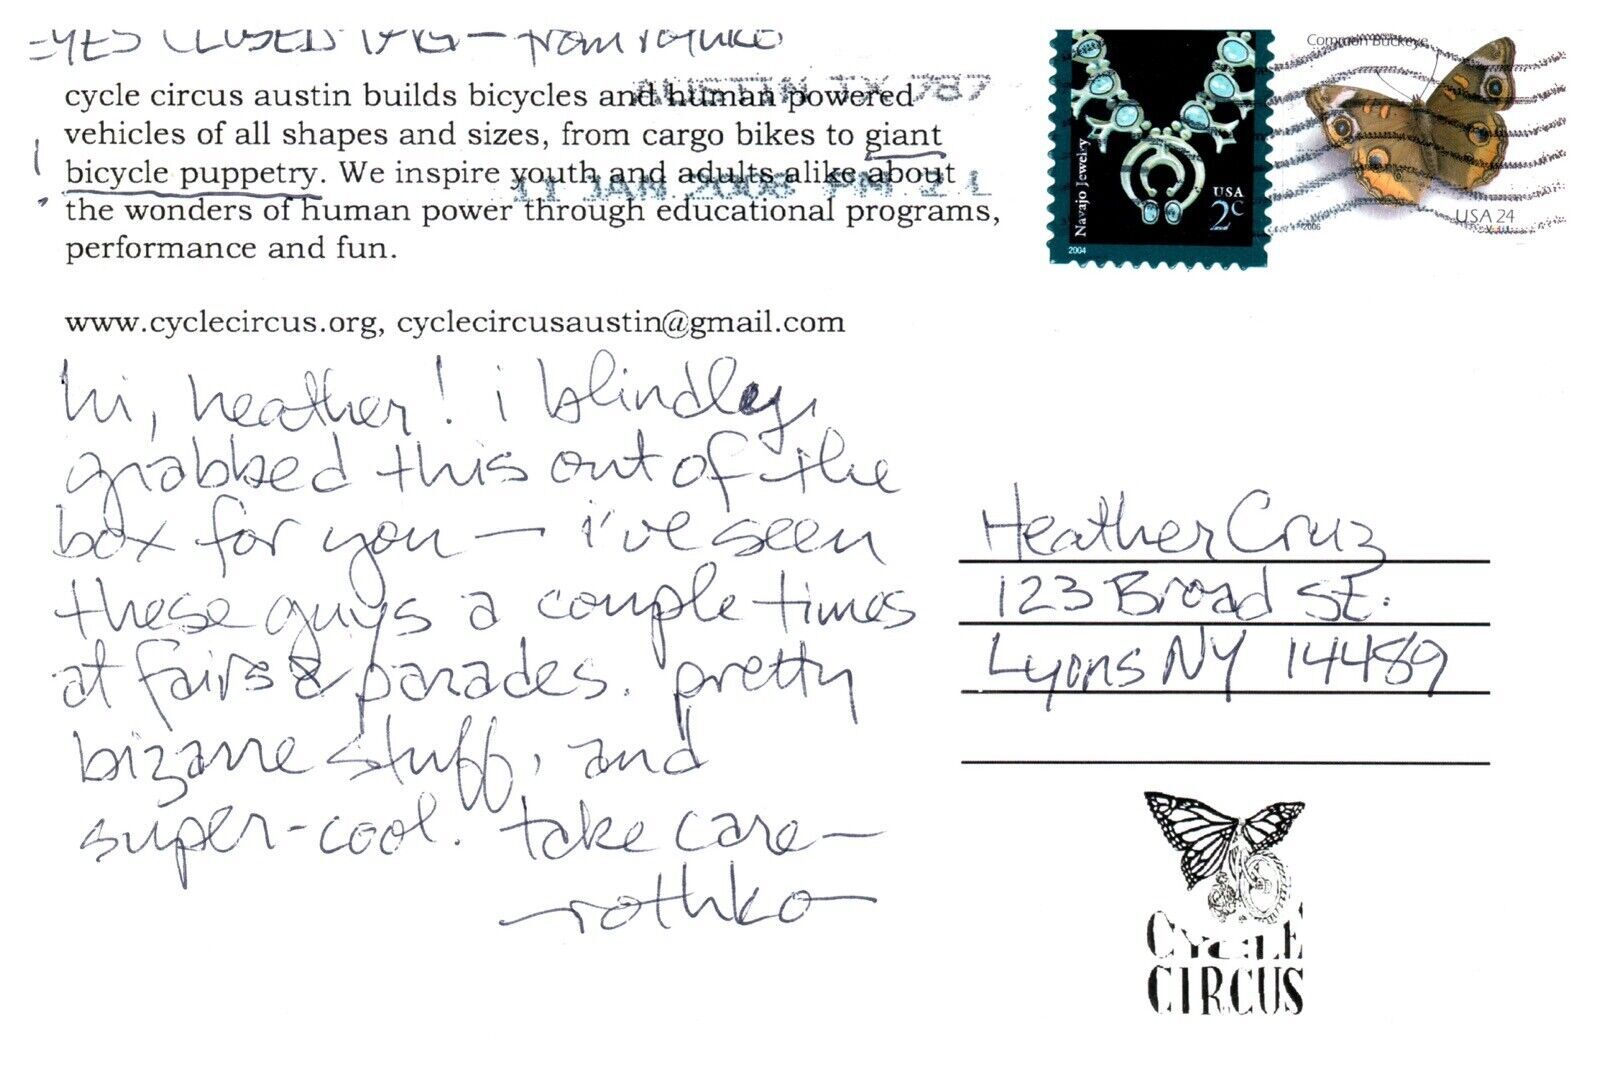 EYES CLOSED TAG - from rothko
cycle circus austin builds bicycles and human powered
vehicles of all shapes and sizes, from cargo bikes to giant
bicycle puppetry. We inspire youth and adults alike about
the wonders of human power through educational programs,
performance and fun.
www.cyclecircus.org, cyclecircusaustin@gmail.com
AUSTIN TX 787
11 JAN 2008 PM 2 L
Navajo Jewelry
USA
2c
2004
Common Buckeye
USA 24
2006
hi, heather! i blindly
grabbed this out of the
box for you — i've seen
these guys a couple times
at fairs & parades. pretty
bizarre stuff, and
super-cool. take care —
— rothko —
Heather Cruz
123 Broad St.
Lyons NY 14489
CYCLE
CIRCUS